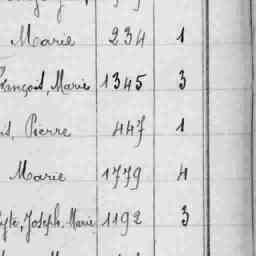 Marie 234 1
François, Marie 1345 3
Pierre 447 1
Marie 1779 4
Joseph, Marie 1192 3